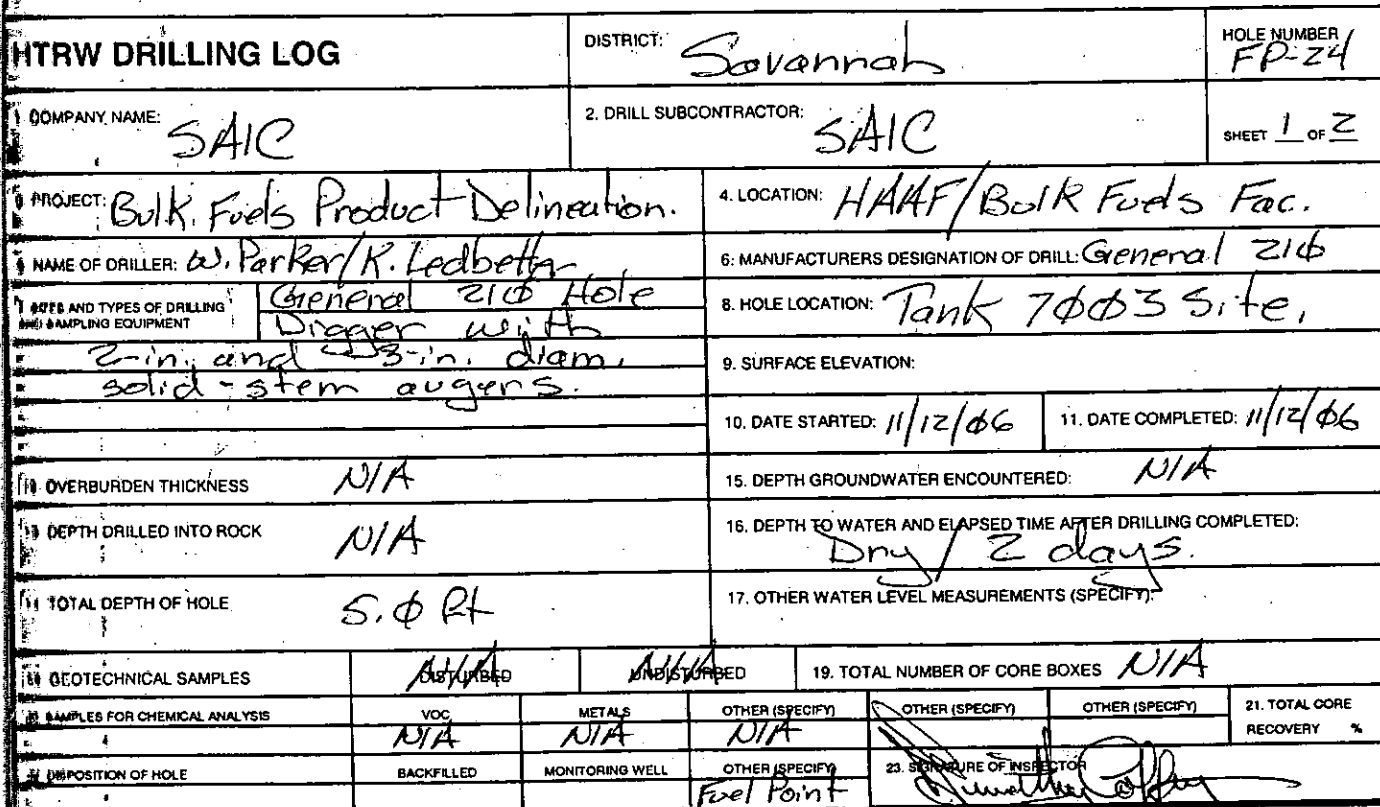 HTRW DRILLING LOG
DISTRICT: Savannah
HOLE NUMBER
FP-24
COMPANY NAME: SAIC
2. DRILL SUBCONTRACTOR: SAIC
SHEET 1 OF 2
PROJECT: Bulk Fuels Product Delineation.
4. LOCATION: HAAF/Bulk Fuels Fac.
NAME OF DRILLER: W. Parker/K. Ledbetter
6: MANUFACTURERS DESIGNATION OF DRILL: General 21Ø
AND TYPES OF DRILLING
AND SAMPLING EQUIPMENT
General 21Ø Hole
Digger with
2-in. and 3-in. diam.
solid-stem augers.
8. HOLE LOCATION: Tank 7ØØ3 Site.
9. SURFACE ELEVATION:
10. DATE STARTED: 11/12/Ø6
11. DATE COMPLETED: 11/12/Ø6
OVERBURDEN THICKNESS N/A
15. DEPTH GROUNDWATER ENCOUNTERED: N/A
DEPTH DRILLED INTO ROCK N/A
16. DEPTH TO WATER AND ELAPSED TIME AFTER DRILLING COMPLETED:
Dry / 2 days.
TOTAL DEPTH OF HOLE 5.Ø ft
17. OTHER WATER LEVEL MEASUREMENTS (SPECIFY):
GEOTECHNICAL SAMPLES
DISTURBED N/A
UNDISTURBED N/A
19. TOTAL NUMBER OF CORE BOXES N/A
SAMPLES FOR CHEMICAL ANALYSIS
VOC
METALS
OTHER (SPECIFY)
OTHER (SPECIFY)
OTHER (SPECIFY)
21. TOTAL CORE
RECOVERY %
N/A
N/A
N/A
DISPOSITION OF HOLE
BACKFILLED
MONITORING WELL
OTHER (SPECIFY)
Fuel Point
23. SIGNATURE OF INSPECTOR